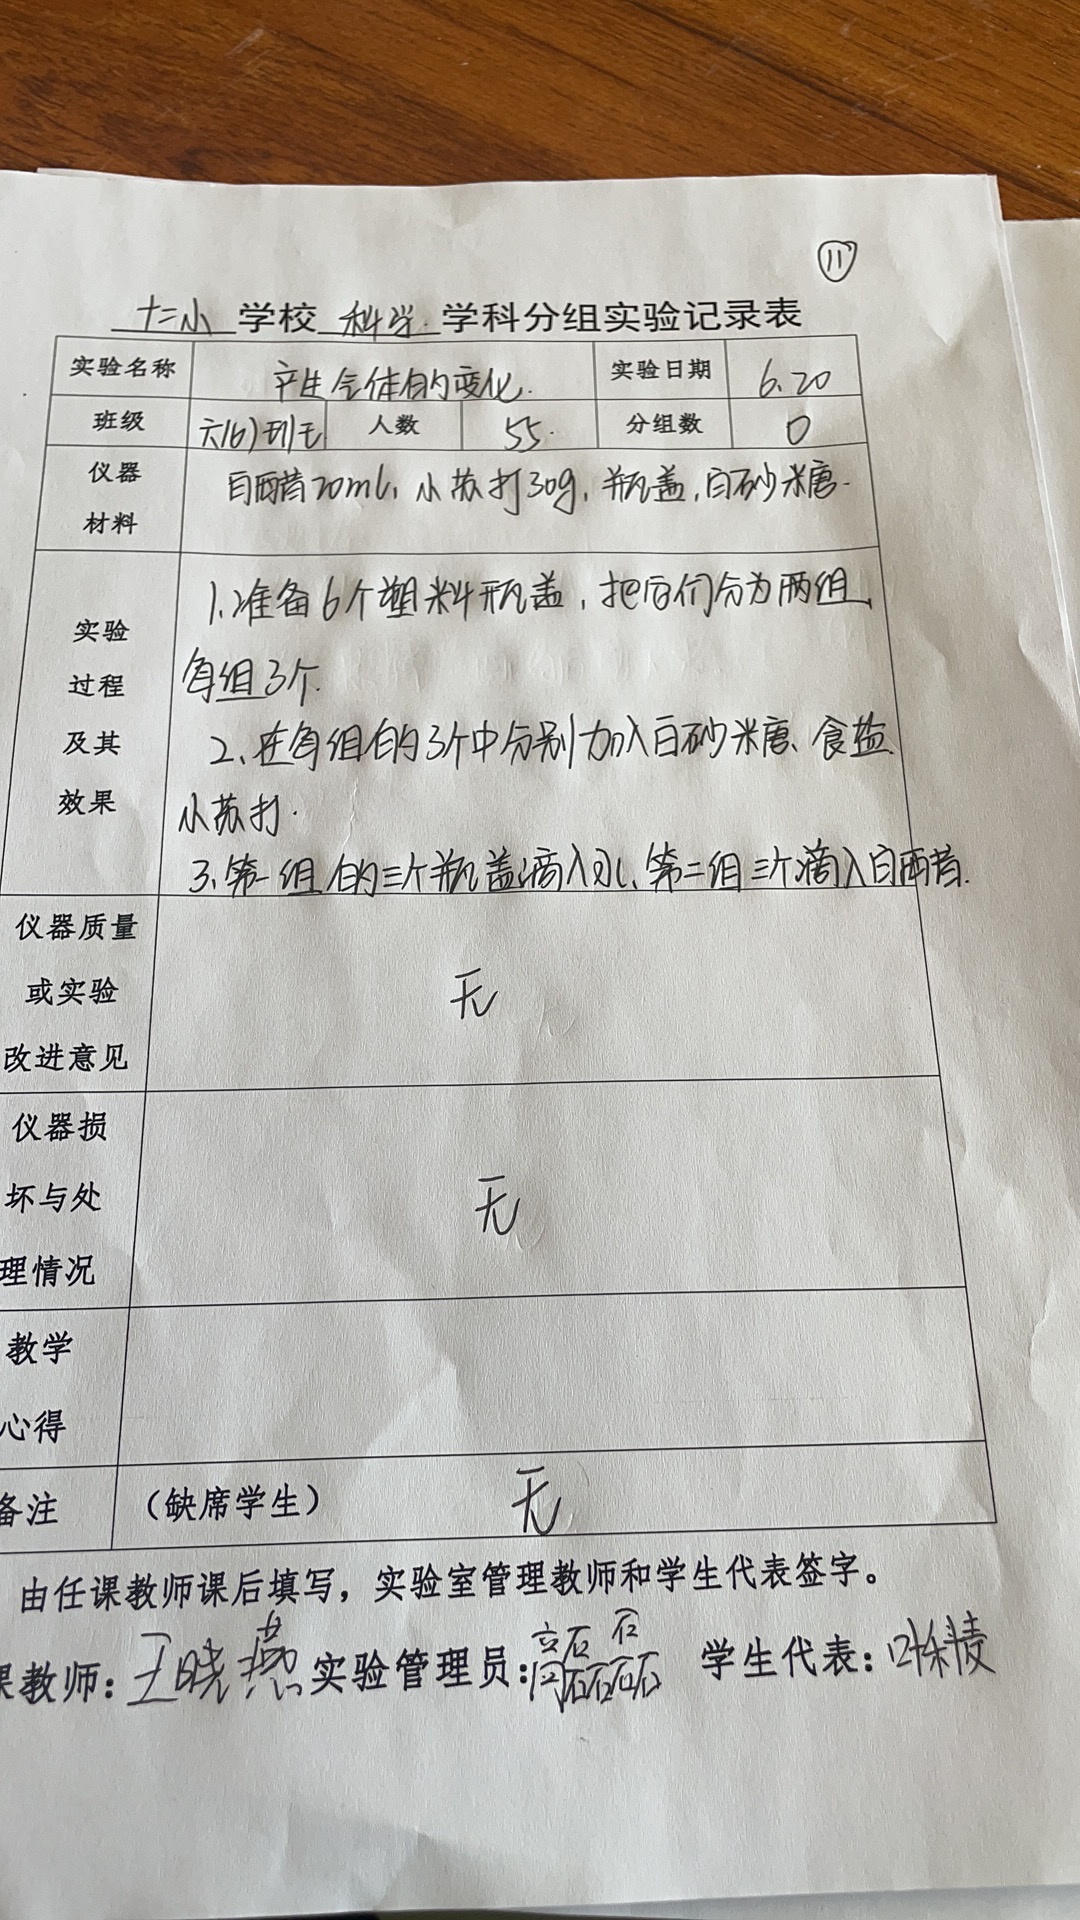 11
十二小 学校 科学 学科分组实验记录表
实验名称 产生气体的变化. 实验日期 6.20
班级 六(6)班 人数 55. 分组数 0
仪器 材料 白醋20ml、小苏打30g, 瓶盖, 白砂糖.
实验 过程 及其 效果
1、准备6个塑料瓶盖, 把它们分为两组,
每组3个.
2、在每组的3个中分别加入白砂糖、食盐
小苏打.
3、第一组的三个瓶盖滴入水、第二组三个滴入白醋.
仪器质量
或实验 无
改进意见
仪器损
坏与处 无
理情况
教学
心得
备注 (缺席学生) 无
由任课教师课后填写,实验室管理教师和学生代表签字。
课教师: 王晓燕 实验管理员: 学生代表: